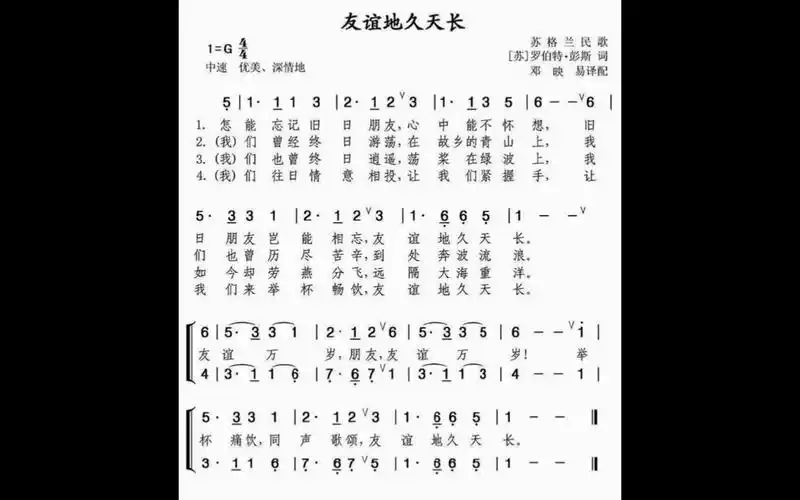 友谊地久天长
1=G 4/4
苏格兰民歌
[苏]罗伯特·彭斯 词
中速 优美、深情地
邓映易译配
5̣ | 1· 1 1 3 | 2· 1 2 ∨ 3 | 1· 1 3 5 | 6 – – ∨ 6 |
1. 怎能忘记旧日朋友,心中能不怀想,旧
2. (我)们曾经终日游荡,在故乡的青山上,我
3. (我)们也曾终日逍遥,荡桨在绿波上,我
4. (我)们往日情意相投,让我们紧握手,让
5· 3 3 1 | 2· 1 2 ∨ 3 | 1· 6̣ 6̣ 5̣ | 1 – – ∨
日朋友岂能相忘,友谊地久天长。
们也曾历尽苦辛,到处奔波流浪。
如今却劳燕分飞,远隔大海重洋。
我们来举杯畅饮,友谊地久天长。
6 | 5· 3 3 1 | 2· 1 2 ∨ 6 | 5· 3 3 5 | 6 – – ∨ 1̇ |
友谊万岁,朋友,友谊万岁!举
4 | 3· 1 1 6̣ | 7̣· 6̣ 7̣ ∨ 1 | 3· 1 1 3 | 4 – – 1 |
5· 3 3 1 | 2· 1 2 ∨ 3 | 1· 6̣ 6̣ 5̣ | 1 – ‖
杯痛饮,同声歌颂,友谊地久天长。
3· 1 1 6̣ | 7̣· 6̣ 7̣ ∨ 5̣ | 1· 6̣ 6̣ 5̣ | 1 – ‖